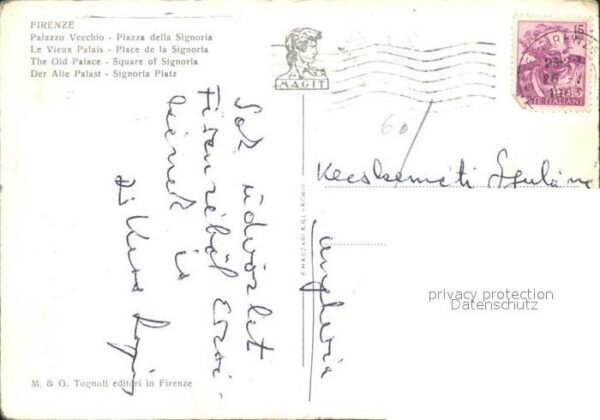 FIRENZE
Palazzo Vecchio - Piazza della Signoria
Le Vieux Palais - Place de la Signoria
The Old Palace - Square of Signoria
Der Alte Palast - Signoria Platz
MAGIT
15
POSTE ITALIANE
60
Sok üdvözlet
Firenzéből Erzsi-
nek is
Kecskeméti Gyuláné
Ungheria
privacy protection
Datenschutz
M. & G. Tognoli editori in Firenze